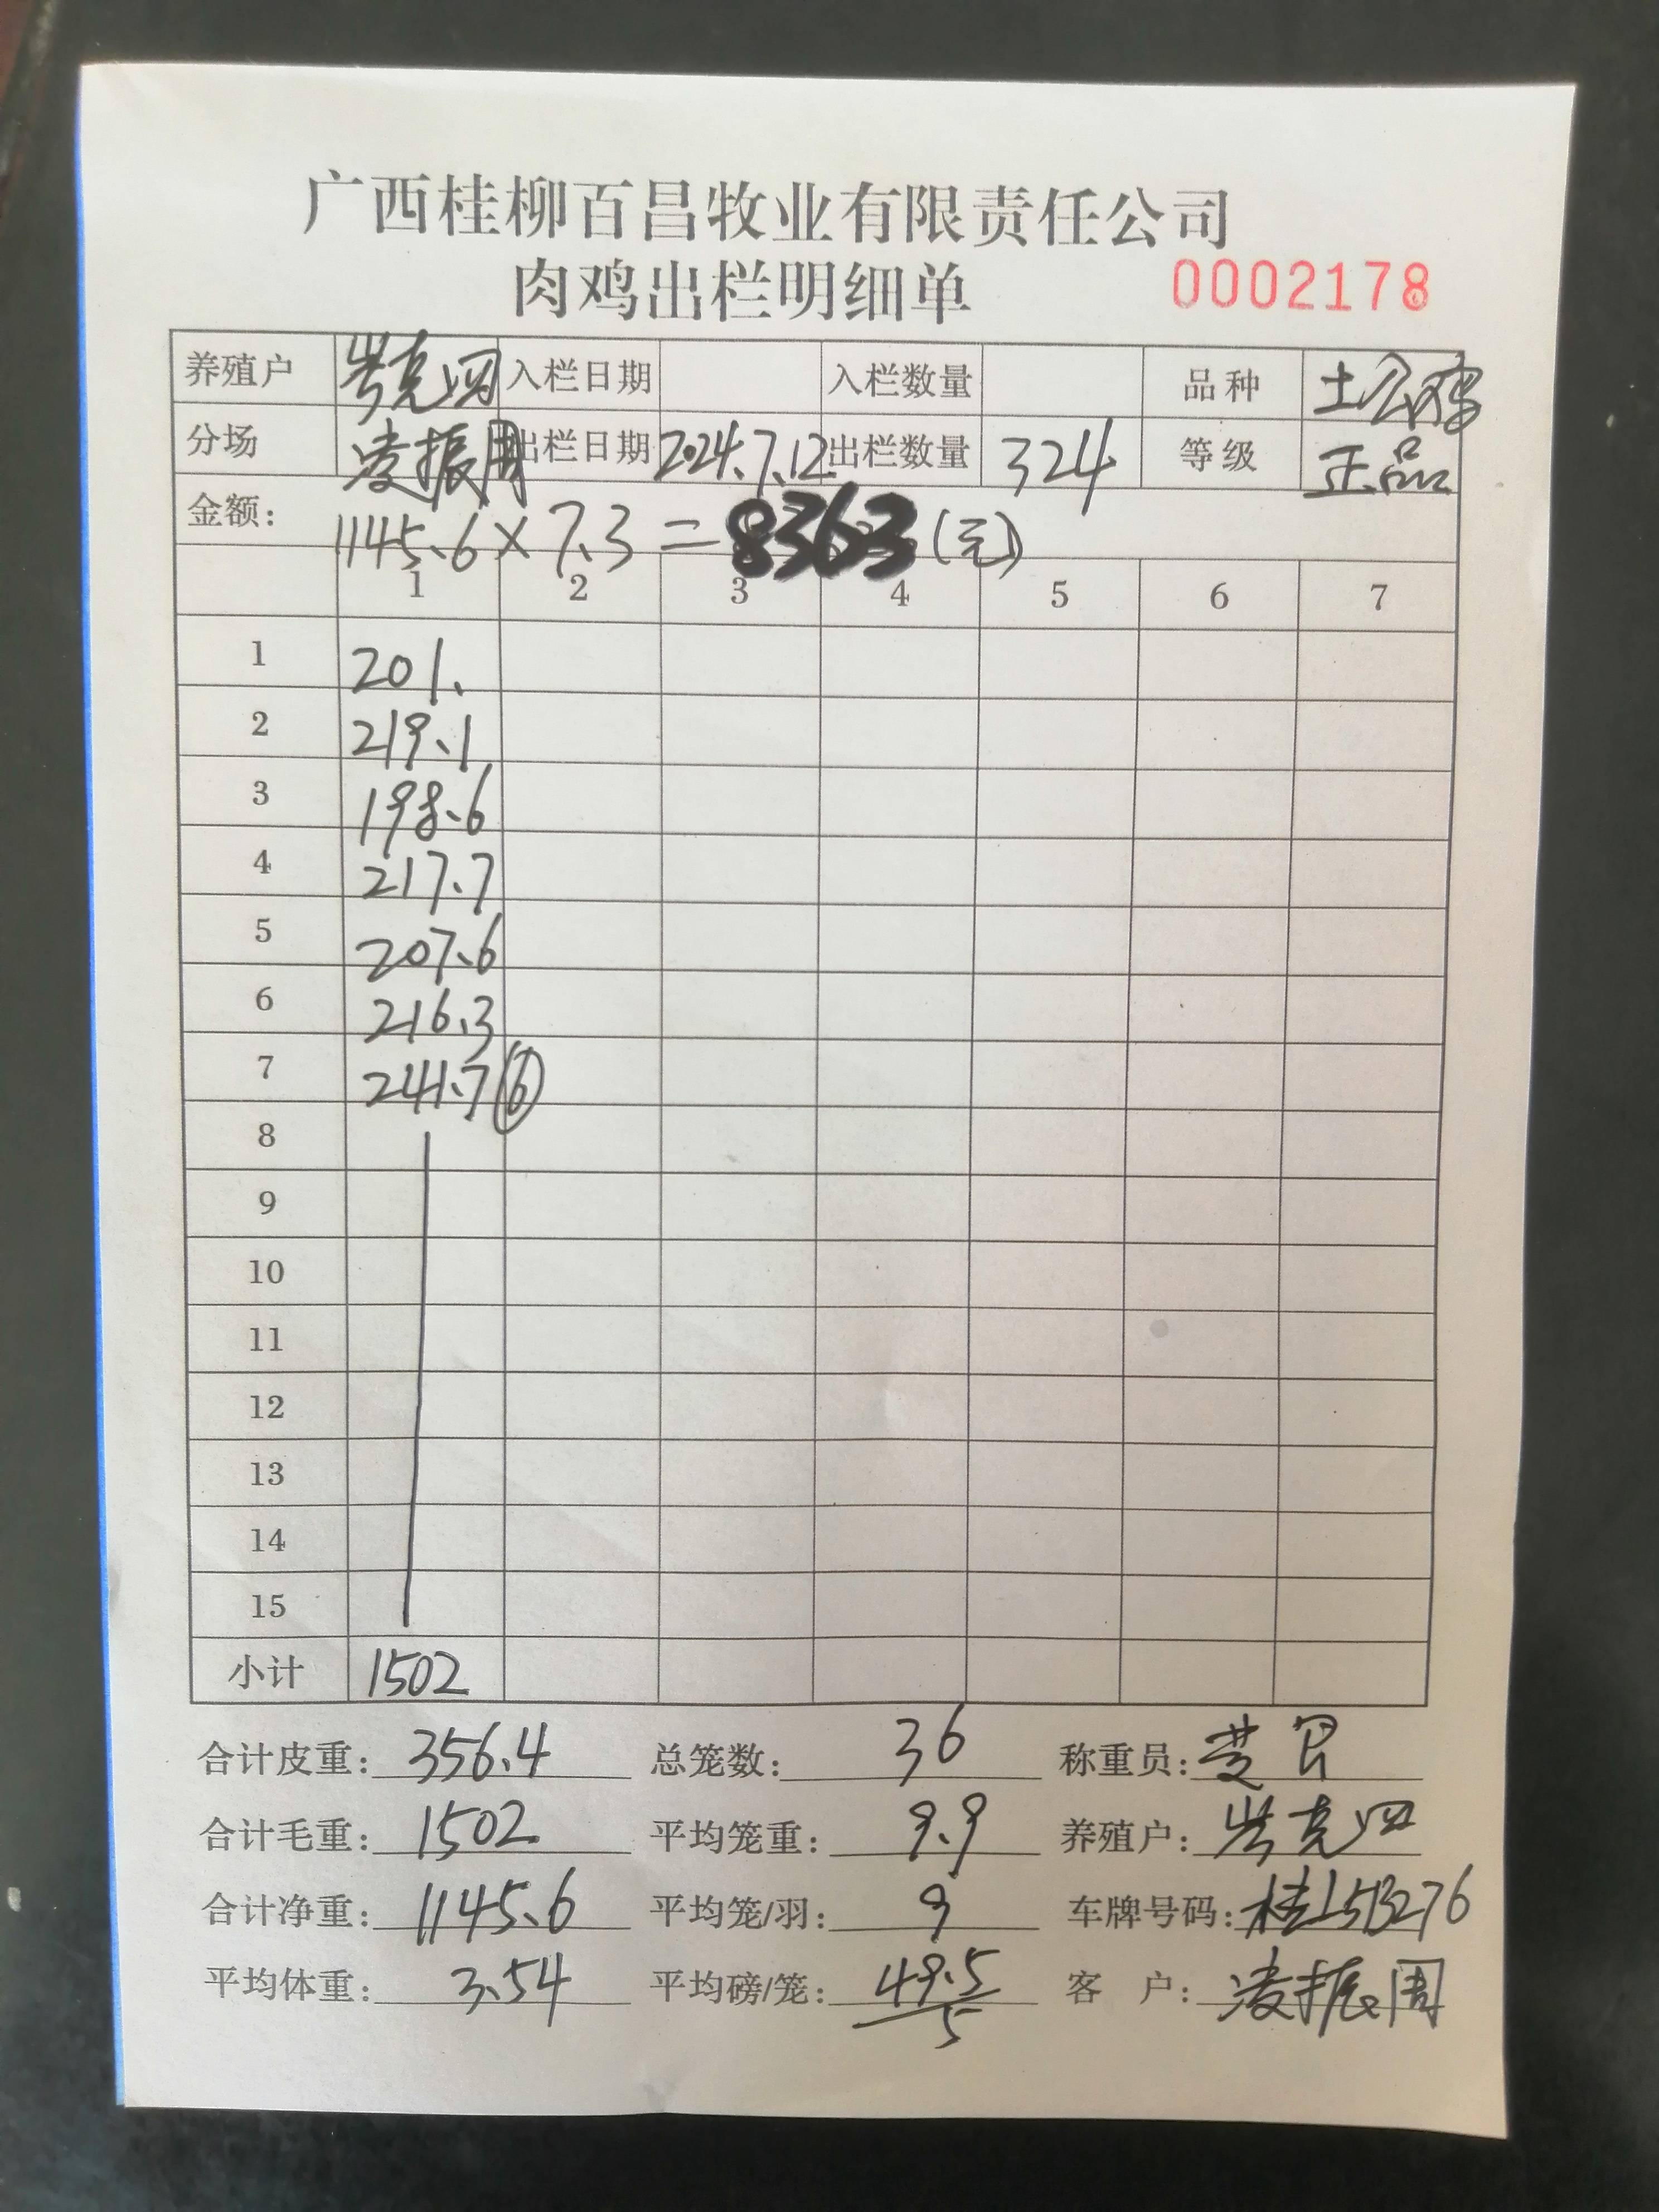 广西桂柳百昌牧业有限责任公司
肉鸡出栏明细单 0002178
养殖户 岑克四 入栏日期 入栏数量 品种 土公鸡
分场 凌振周 出栏日期 2024.7.12 出栏数量 324 等级 正品
金额: 1145.6×7.3=8363(元)
1 2 3 4 5 6 7
1 201.
2 219.1
3 198.6
4 217.7
5 207.6
6 216.3
7 241.7 ⑥
8
9
10
11
12
13
14
15
小计 1502
合计皮重: 356.4 总笼数: 36 称重员:
合计毛重: 1502 平均笼重: 9.9 养殖户: 岑克四
合计净重: 1145.6 平均笼/羽: 9 车牌号码: 桂L5B276
平均体重: 3.54 平均磅/笼: 49.5/5 客户: 凌振周